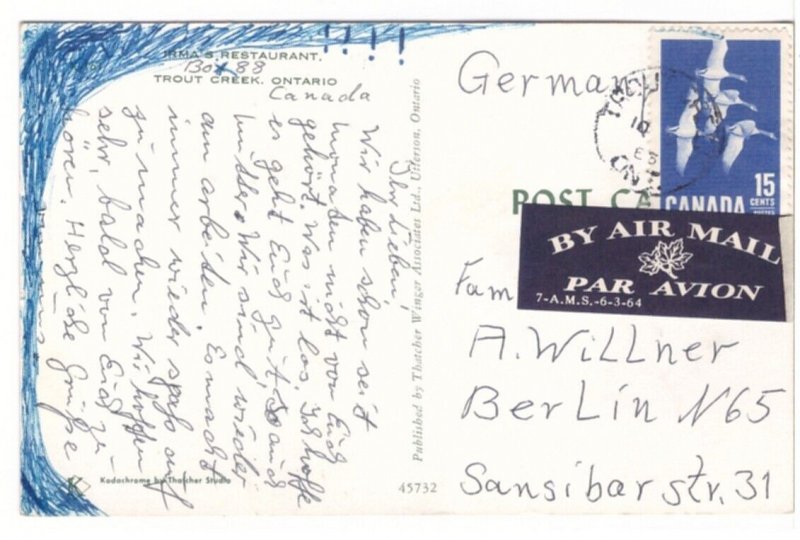 IRMA'S RESTAURANT.
Box 88
TROUT CREEK. ONTARIO
Canada
Ihr Lieben,
Wir haben schon seit
Monaten nicht von Euch
gehört. Was ist los, Ich hoffe
es geht Euch gut so auch
Mutter. Wir sind wieder
am arbeiten. Es macht
immer wieder spaß auf
zu machen. Wir hoffen
sehr, bald von Euch zu
hören. Herzliche Grüße
Kodachrome by Thatcher Studio
Published by Thatcher Winger Associates Ltd., Ufferson, Ontario
45732
Germany
ONT
15
CENTS
CANADA
POST CA
BY AIR MAIL
PAR AVION
7-A.M.S.-6-3-64
Fam
A. Willner
Berlin N65
Sansibarstr. 31